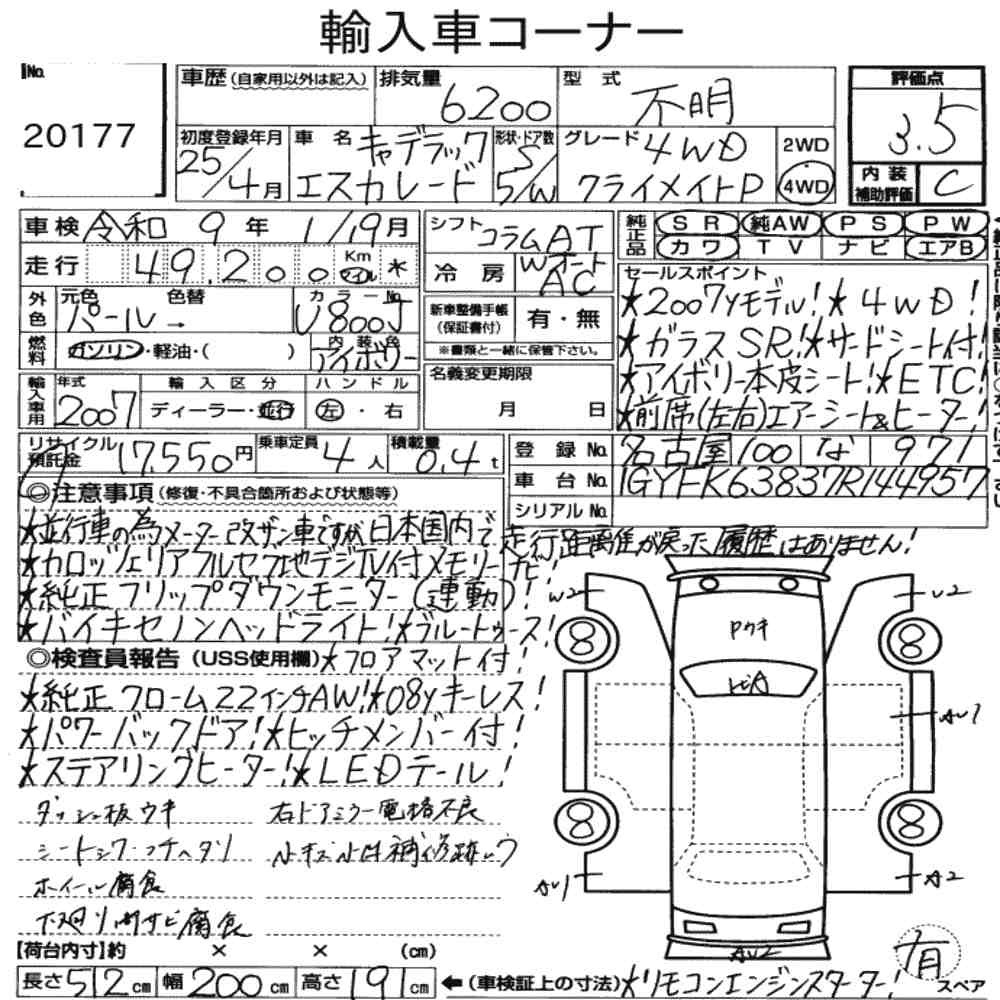 輸入車コーナー
No. 20177
車歴 (自家用以外は記入) 排気量 6200 型式 不明
初度登録年月 25/4月 車名 キャデラック エスカレード 形状・ドア数 S/5/W グレード 4WD クライメイトP 2WD 4WD
評価点 3.5
内装補助評価 C
車検 令和 9年 1/19月 シフト コラムAT
純正品 SR 純AW PS PW
カワ TV ナビ エアB
走行 49,200 Km マイル * 冷房 Wオート AC
外色 元色 パール → 色替 カラーNo. U800J
燃料 ガソリン・軽油・( ) 内装色 アイボリー
新車整備手帳 (保証書付) 有・無
※書類と一緒に保管下さい。
輸入車用 年式 2007 輸入区分 ディーラー・並行 ハンドル 左・右
名義変更期限 月 日
セールスポイント
★2007yモデル!★4WD!
★ガラスSR!★サードシート付!
★アイボリー本皮シート!★ETC!
★前席(左右)エアーシート&ヒーター!
リサイクル預託金 17,550円 乗車定員 4人 積載量 0.4t
登録No. 名古屋 100 な 971
車台No. 1GYFK63837R144957
シリアルNo.
◎注意事項 (修復・不具合箇所および状態等)
★並行車の為メーター改ザン車ですが日本国内で走行距離が戻った履歴はありません!
★カロッツェリアフルセグ地デジTV付メモリーナビ!
★純正フリップダウンモニター(連動)!
★バイキセノンヘッドライト!★ブルートゥース!
◎検査員報告 (USS使用欄) ★フロアマット付!
★純正クローム22インチAW!★08yキーレス!
★パワーバックドア!★ヒッチメンバー付!
★ステアリングヒーター!★LEDテール!
ダッシュ板ウキ 右ドアミラー電格不良
シートシワ・コチヘタリ 小キズ小凹補修跡有り
ホイール腐食
下廻り 腐食
W2 U2
Pウキ
トビA
AU1
8 8 8 8
AU1 A2
AU2
【荷台内寸】約 × × (cm)
長さ512cm 幅200cm 高さ191cm ←(車検証上の寸法) ★リモコンエンジンスターター!
有 スペア